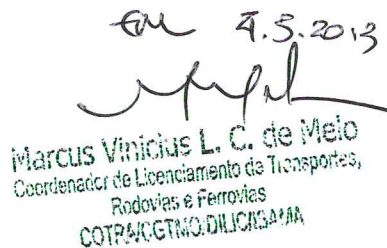 Em 4.5.2013
Marcus Vinicius L. C. de Melo
Coordenador de Licenciamento de Transportes,
Rodovias e Ferrovias
COTRA/CGTMO/DILIC/IBAMA